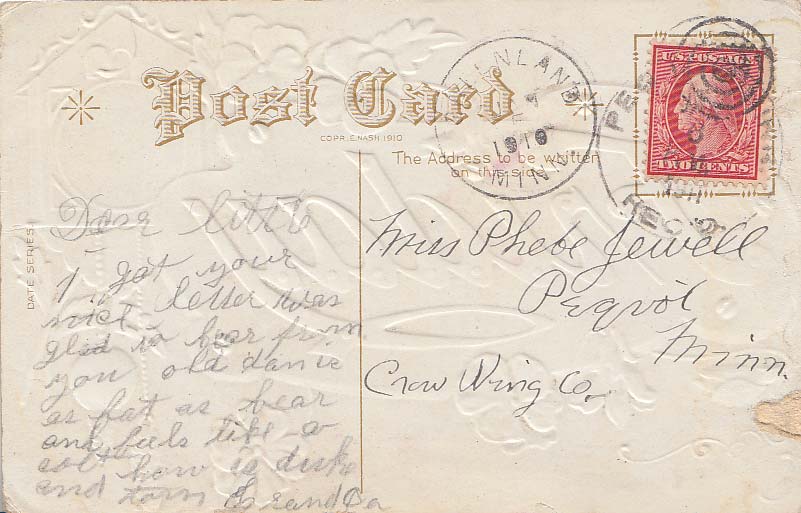 Post Card
COPR. E. NASH 1910
The Address to be written
on this side
U.S. POSTAGE
TWO CENTS
MINN
1910
REC'D
DATE SERIES 1
Dear little
I got your
nice letter was
glad to hear from
you old dan is
as fat as bear
and feels like a
colt how is duke
and torn GrandPa
Miss Phebe Jewell
Peqvot
Minn.
Crow Wing Co.